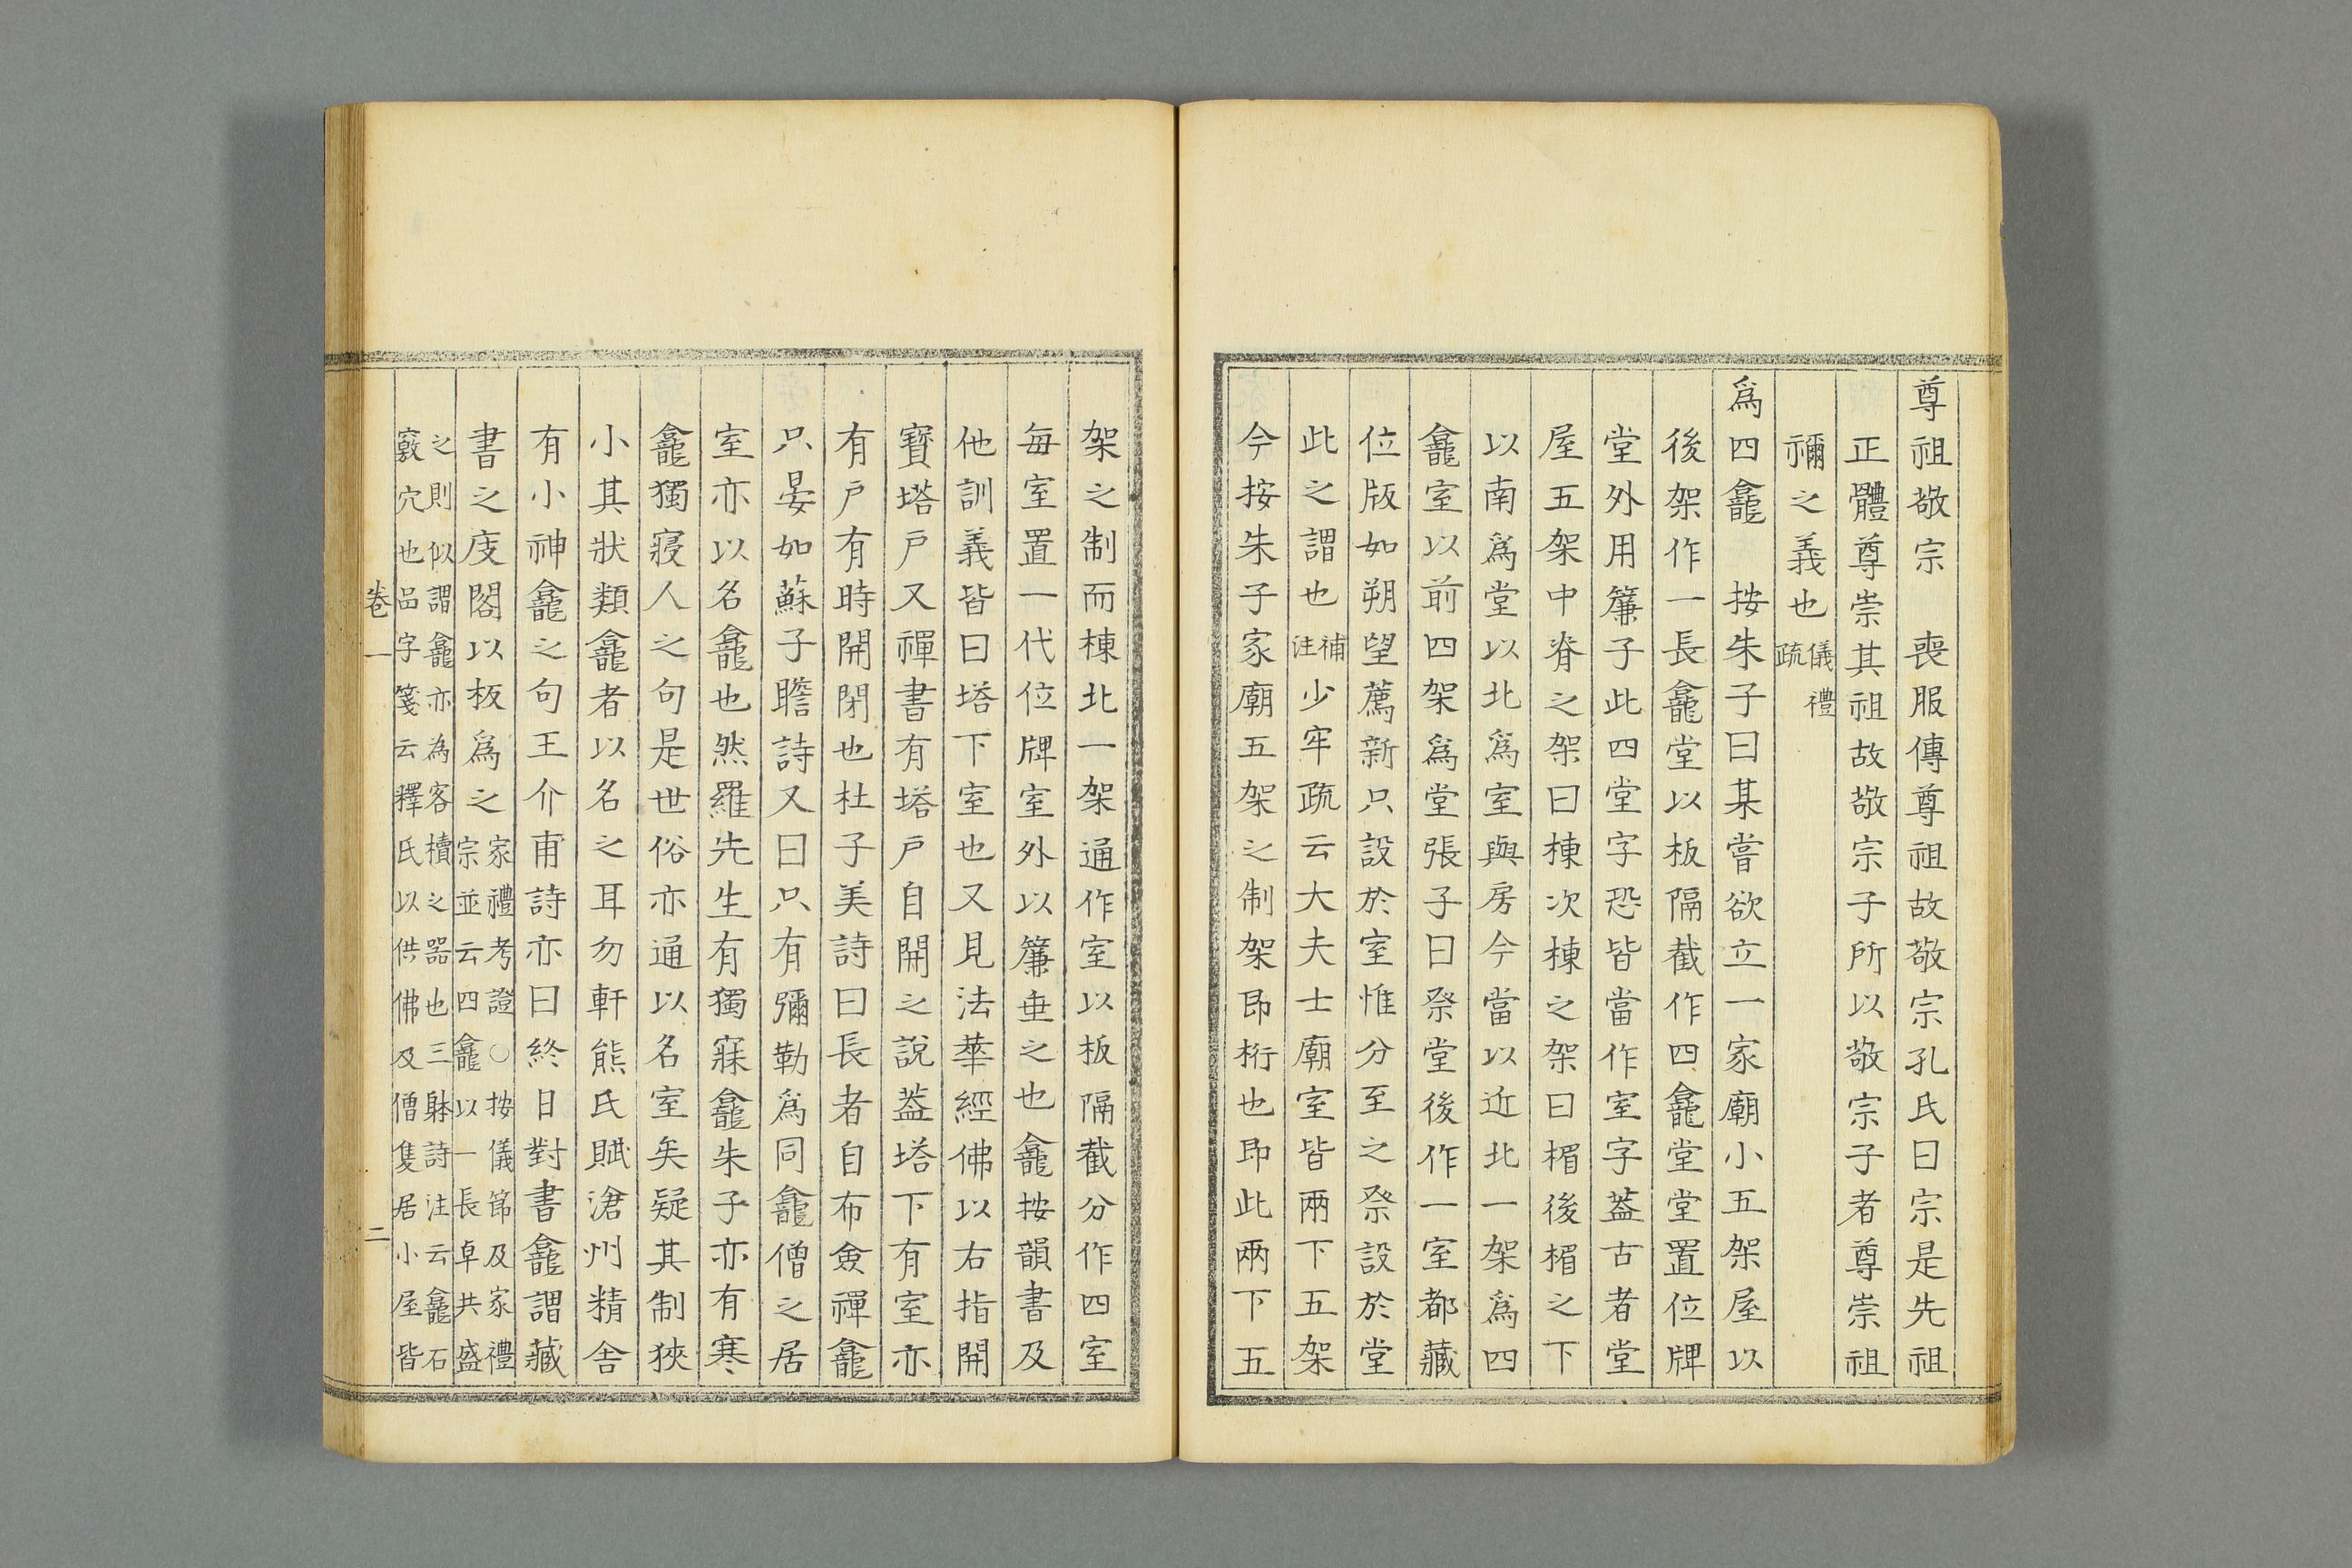 尊祖敬宗　喪服傳尊祖故敬宗孔氏曰宗是先祖
正體尊崇其祖故敬宗子所以敬宗子者尊崇祖
禰之義也儀禮疏
爲四龕　按朱子曰某嘗欲立一家廟小五架屋以
後架作一長龕堂以板隔截作四龕堂堂置位牌
堂外用簾子此四堂字恐皆當作室字葢古者堂
屋五架中脊之架曰棟次棟之架曰楣後楣之下
以南爲堂以北爲室與房今當以近北一架爲四
龕室以前四架爲堂張子曰祭堂後作一室都藏
位版如朔望薦新只設於室惟分至之祭設於堂
此之謂也補注少牢疏云大夫士廟室皆兩下五架
今按朱子家廟五架之制架卽桁也卽此兩下五
架之制而棟北一架通作室以板隔截分作四室
每室置一代位牌室外以簾垂之也龕按韻書及
他訓義皆曰塔下室也又見法華經佛以右指開
寶塔戶又禪書有塔戶自開之說葢塔下有室亦
有戶有時開閉也杜子美詩曰長者自布金禪龕
只晏如蘇子瞻詩又曰只有彌勒爲同龕僧之居
室亦以名龕也然羅先生有獨寐龕朱子亦有寒
龕獨寢人之句是世俗亦通以名室矣疑其制狹
小其狀類龕者以名之耳勿軒熊氏賦滄州精舍
有小神龕之句王介甫詩亦曰終日對書龕謂藏
書之庋閣以板爲之家禮考證○按儀節及家禮
宗並云四龕以一長卓共盛
之則似謂龕亦為客櫝之器也三躰詩注云龕石
竅穴也品字箋云釋氏以供佛及僧隻居小屋皆
卷一
二